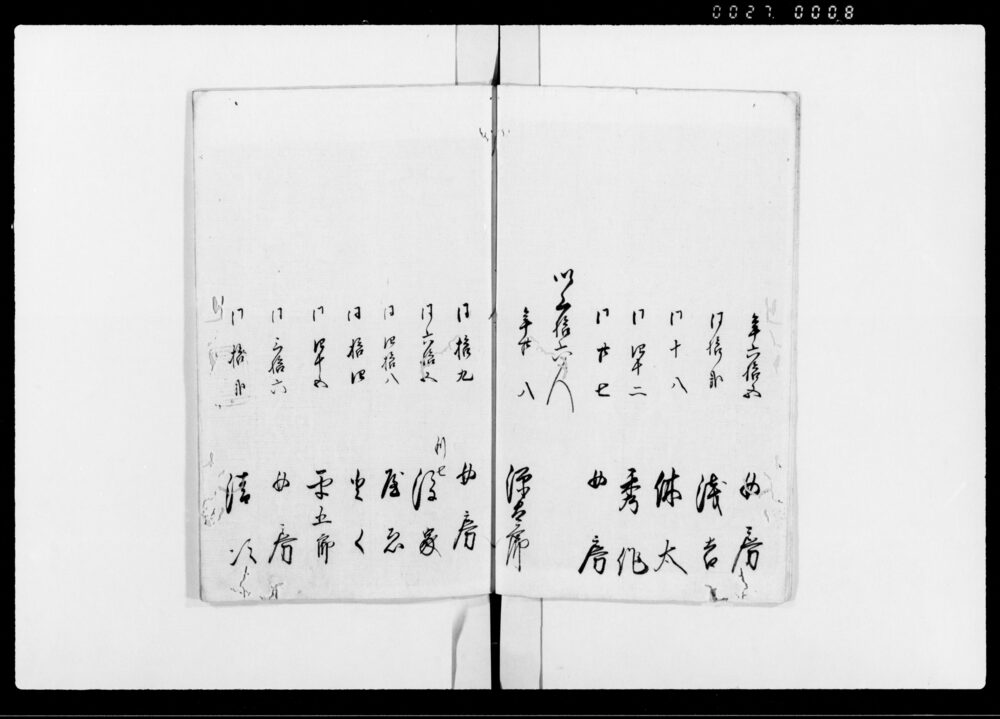 0027 0008
年六拾五 女房
同拾弐 浅吉
同十八 休太
同四十二 秀作
同廿七 女房
〆三拾六人
年廿八 源太郎
同拾九 女房
同六拾五 後家
同四拾八
同拾四
同四十五 平五郎
同三拾六 女房
同拾弐 清次